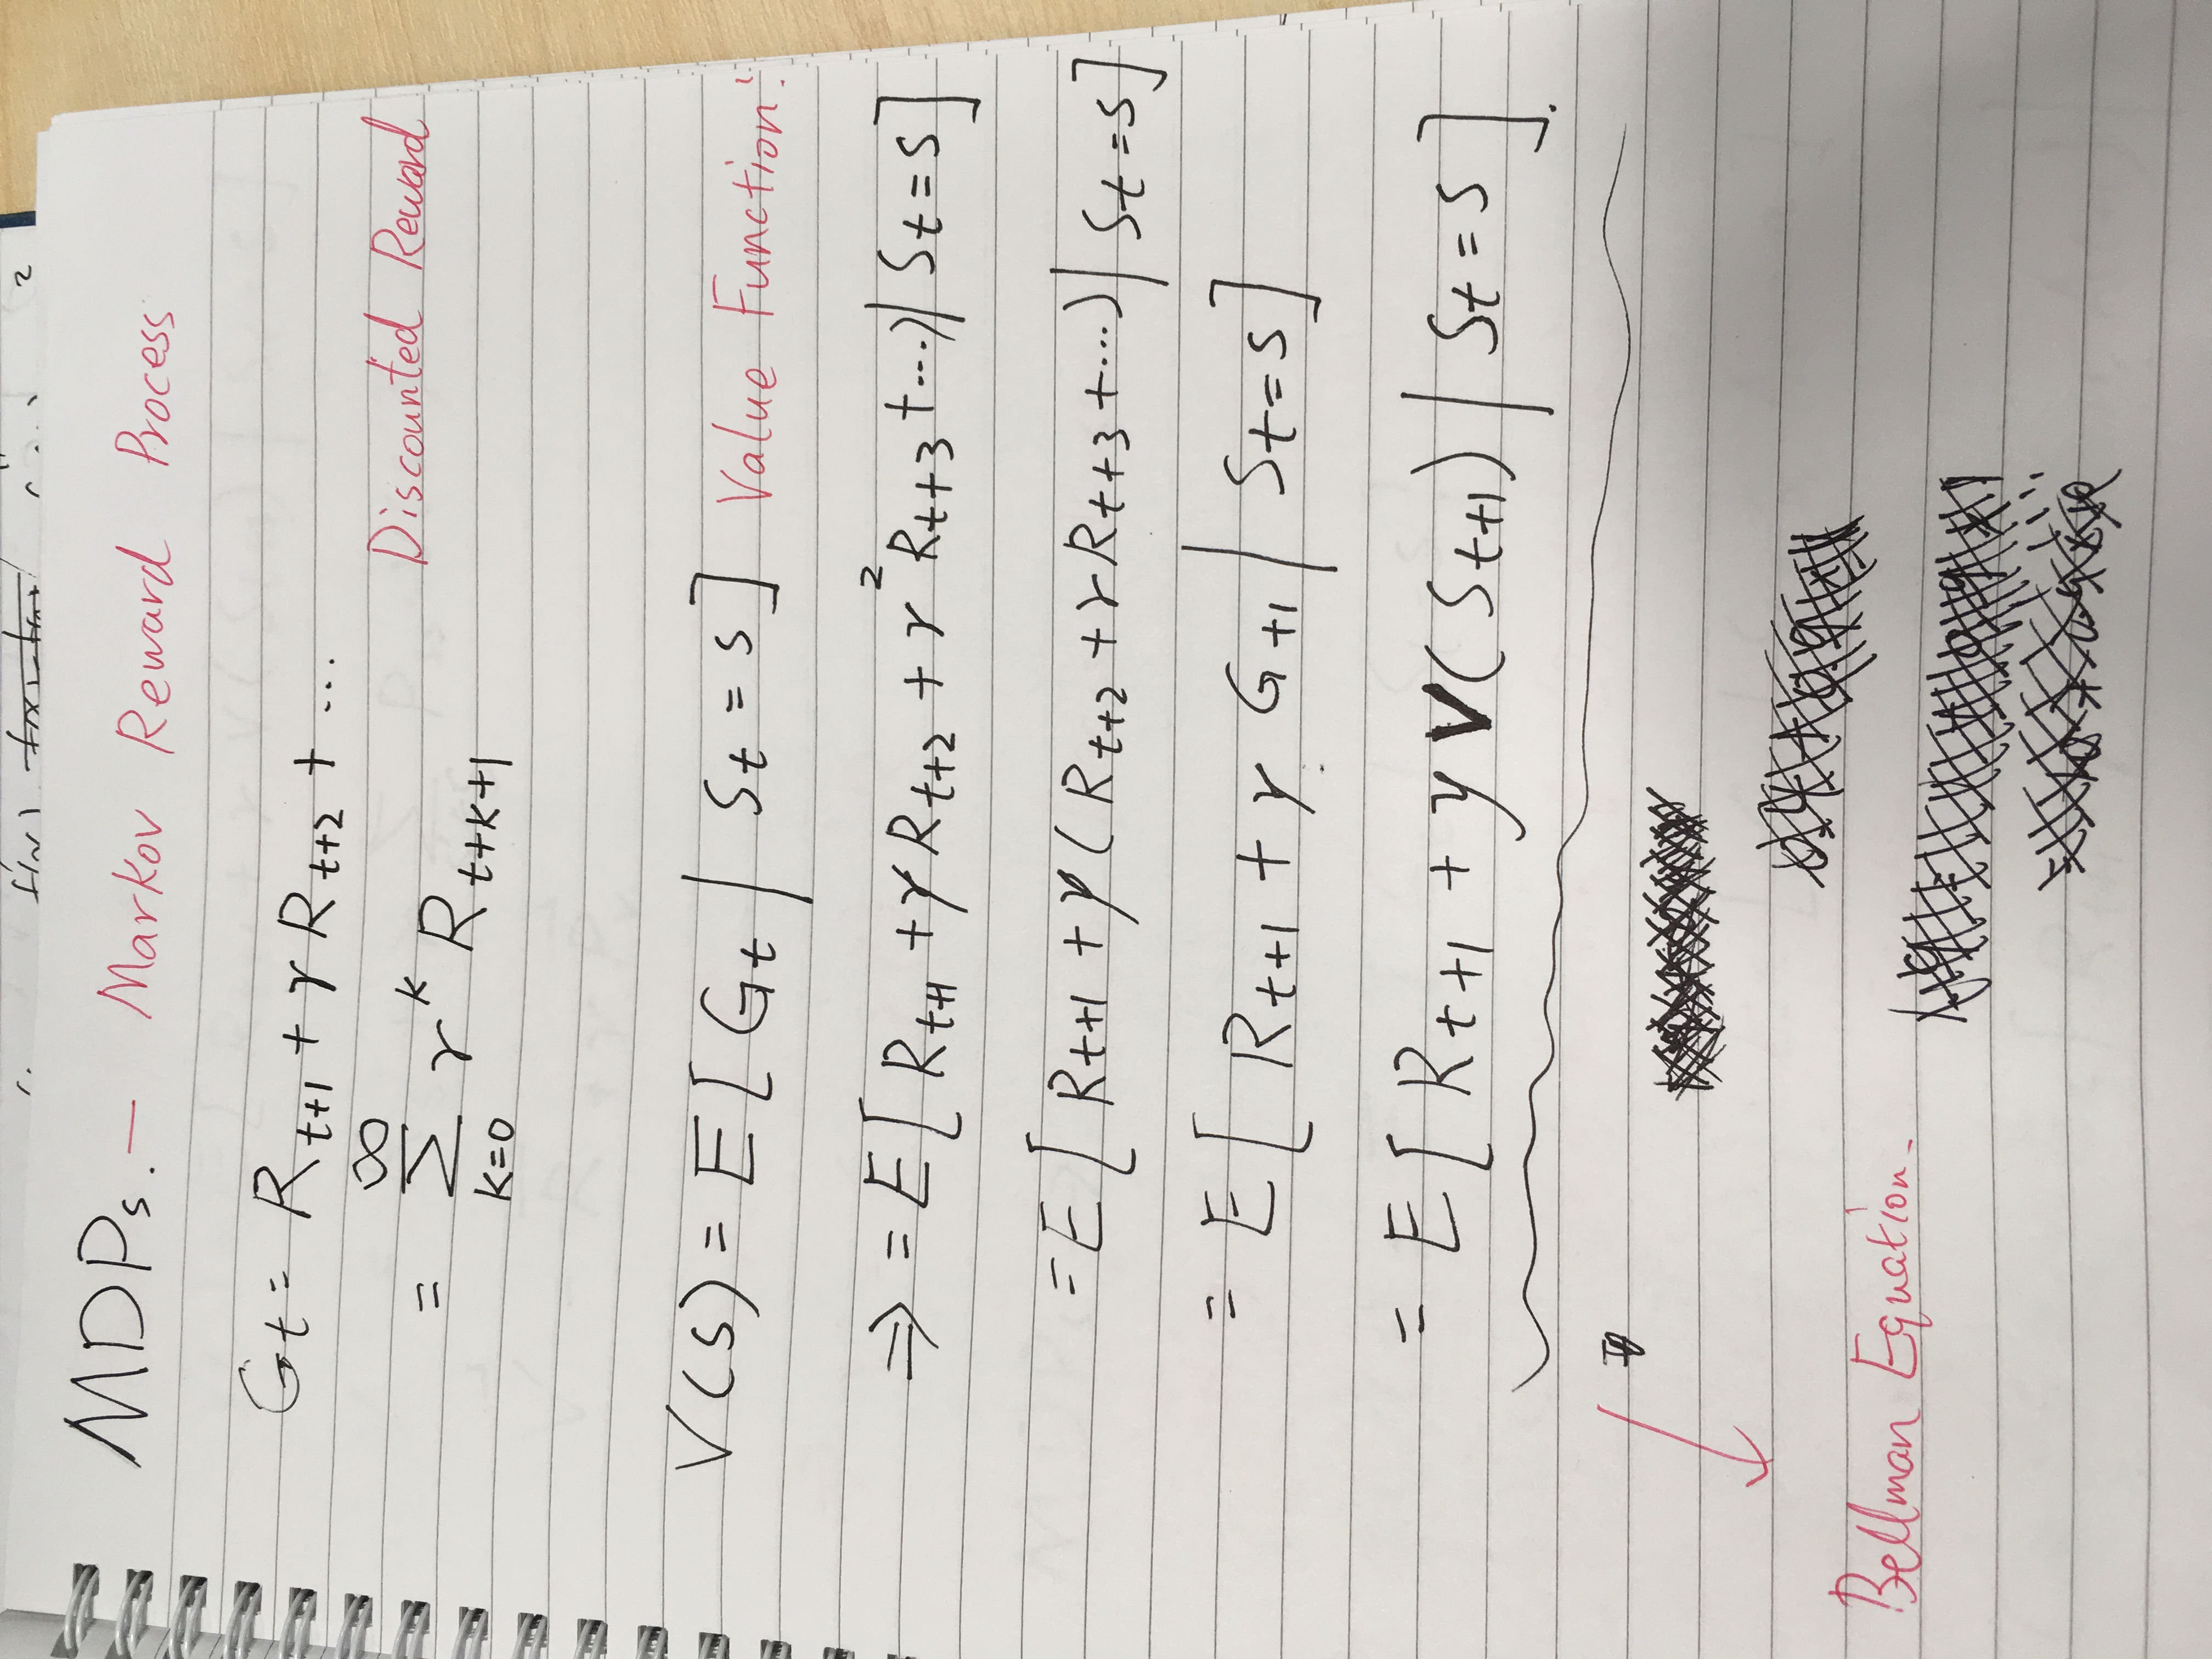 MDPs. — Markov Reward Process
Gt = R t+1 + γ R t+2 + ...
= ∞ Σ K=0 γ^K R t+K+1 Discounted Reward
V(s) = E[ Gt | St = s ] Value Function!
⇒ = E[ Rt+1 + γ Rt+2 + γ^2 Rt+3 + ...) | St = s ]
= E[ Rt+1 + γ ( Rt+2 + γ Rt+3 + ...) | St = s ]
= E[ Rt+1 + γ G+1 | St = s ]
= E[ Rt+1 + γ V( St+1 ) | St = s ].
Bellman Equation.